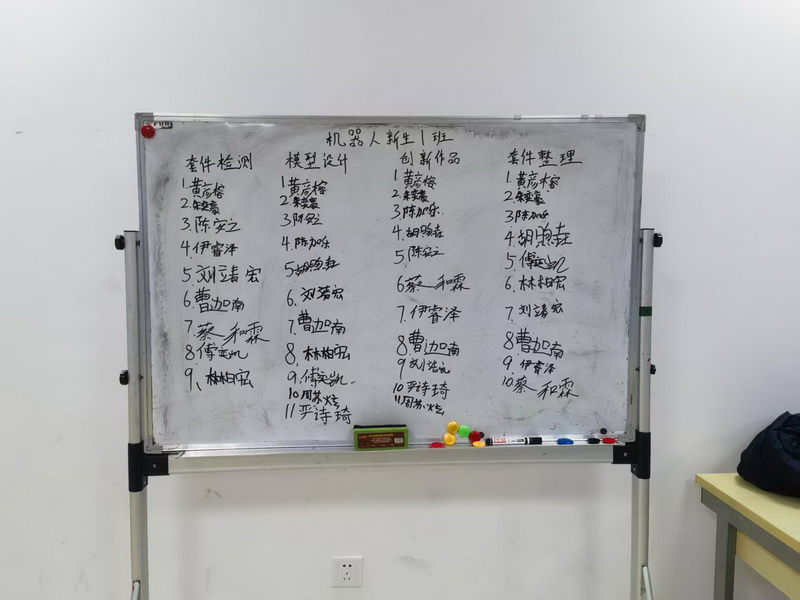 机器人新生1班
套件检测
1.黄彦榕
2.朱奕豪
3.陈安之
4.伊睿泽
5.刘靖宏
6.曹迦南
7.蔡和霖
8.傅奕凯
9、林柏宏
模型设计
1.黄彦榕
2.朱奕豪
3.陈安之
4.陈加乐
5.胡煦垚
6.刘靖宏
7.曹迦南
8.林柏宏
9.傅奕凯
10.周苏炫
11严诗琦
创新作品
1.黄彦榕
2.朱奕豪
3.陈加乐
4.胡煦垚
5.陈安之
6蔡和霖
7.伊睿泽
8曹迦南
9.刘靖宏
10严诗琦
11周苏炫
套件整理
1.黄彦榕
2.朱奕豪
3.陈加乐
4.胡煦垚
5.傅奕凯
6.林柏宏
7.刘靖宏
8曹迦南
9.伊睿泽
10.蔡和霖